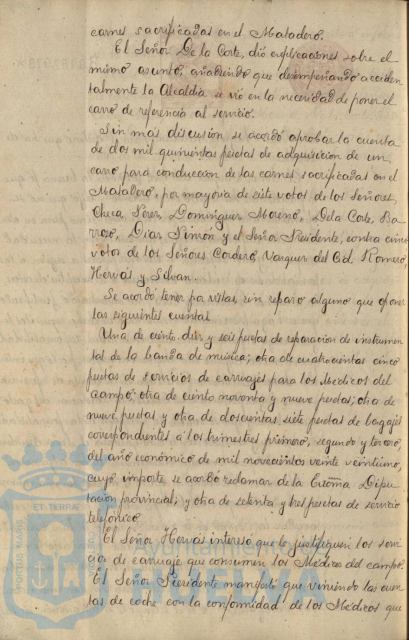 carnes sacrificadas en el Matadero.
El Señor De la Corte, dió explicaciones sobre el
mismo asunto, añadiendo que desempeñando acciden
talmente la Alcaldia, se vió en la necesidad de poner el
carro de referencia al servicio.
Sin más discusion se acordó aprobar la cuenta
de dos mil quinientas pesetas de adquisicion de un
carro para conduccion de las carnes sacrificadas en el
Matadero, por mayoria de siete votos de los Señores,
Checa, Perez, Dominguez Moreno, De la Corte, Ba
rroso, Diaz Pinzón y el Señor Presidente, contra cinco
votos de los Señores Cordero, Vazquez del Cid, Romero,
Hervás y Silvan.
Se acordó tener por vistas, sin reparo alguno que oponer
las siguientes cuentas
Una de ciento diez y seis pesetas de reparacion de instrumen
tal de la banda de musica; otra de cuatrocientas cinco
pesetas de servicios de carruajes para los Medicos del
campo; otra de ciento noventa y nueve pesetas; otra de
nueve pesetas y otra de doscientas siete pesetas de bagajes
correspondientes á los trimestres primero, segundo y tercero
del año económico de mil novecientos veinte veintiuno,
cuyo importe se acordó reclamar de la Excma Dipu
tación provincial; y otra de setenta y tres pesetas de servicio
telefónico.
El Señor Hervás interesó que se justifiquen los servi
cios de carruaje que consumen los Medicos del campo.
El Señor Presidente manifestó que viniendo las cuen
tas de coche con la conformidad de los Medicos que
PORTUS MARIS ET TERRAE
Ayuntamiento de
HUELVA